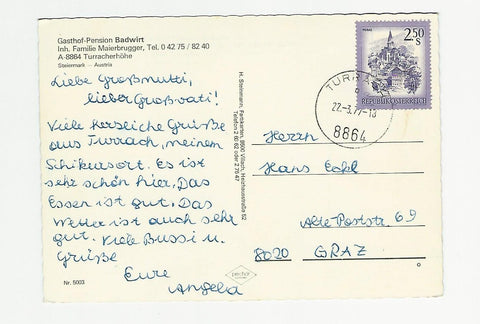 Gasthof-Pension Badwirt
Inh. Familie Maierbrugger, Tel. 0 42 75 / 82 40
A-8864 Turracherhöhe
Steiermark - Austria
Liebe Großmutti,
lieber Großvati!
Viele herzliche Grüße
aus Turrach, meinem
Schikursort. Es ist
sehr schön hier. Das
Essen ist gut. Das
Wetter ist auch sehr
gut. Viele Bussi u.
Grüße
Eure
Angela
Nr. 5003
H. Steinmann, Farbkarten, 9500 Villach,
2,50 S
REPUBLIK ÖSTERREICH
TURRACH
22.-3.77-13
8864
Herrn
Hans
Alte Poststr. 69
8020 GRAZ